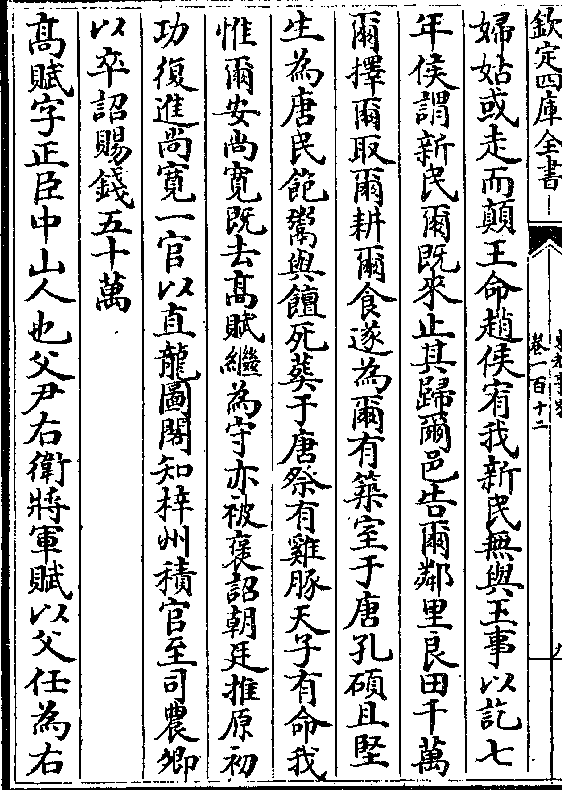 欽定四庫全書
卷一百十二
婦姑或走而顛王命趙侯宥我新民無與王事以訖七
年侯謂新民爾既來止其歸爾邑告爾鄰里良田千萬
爾擇爾取爾耕爾食遂為爾有築室于唐孔碩且堅
生為唐民飽鬻與饘死葬于唐祭有雞豚天子有命我
惟爾安尚寛既去髙賦繼為守亦被襃詔朝廷推原初
功復進尚寛一官以直龍圖閣知梓州積官至司農卿
以卒詔賜錢五十萬
髙賦字正臣中山人也父尹右衛將軍賦以父任為右